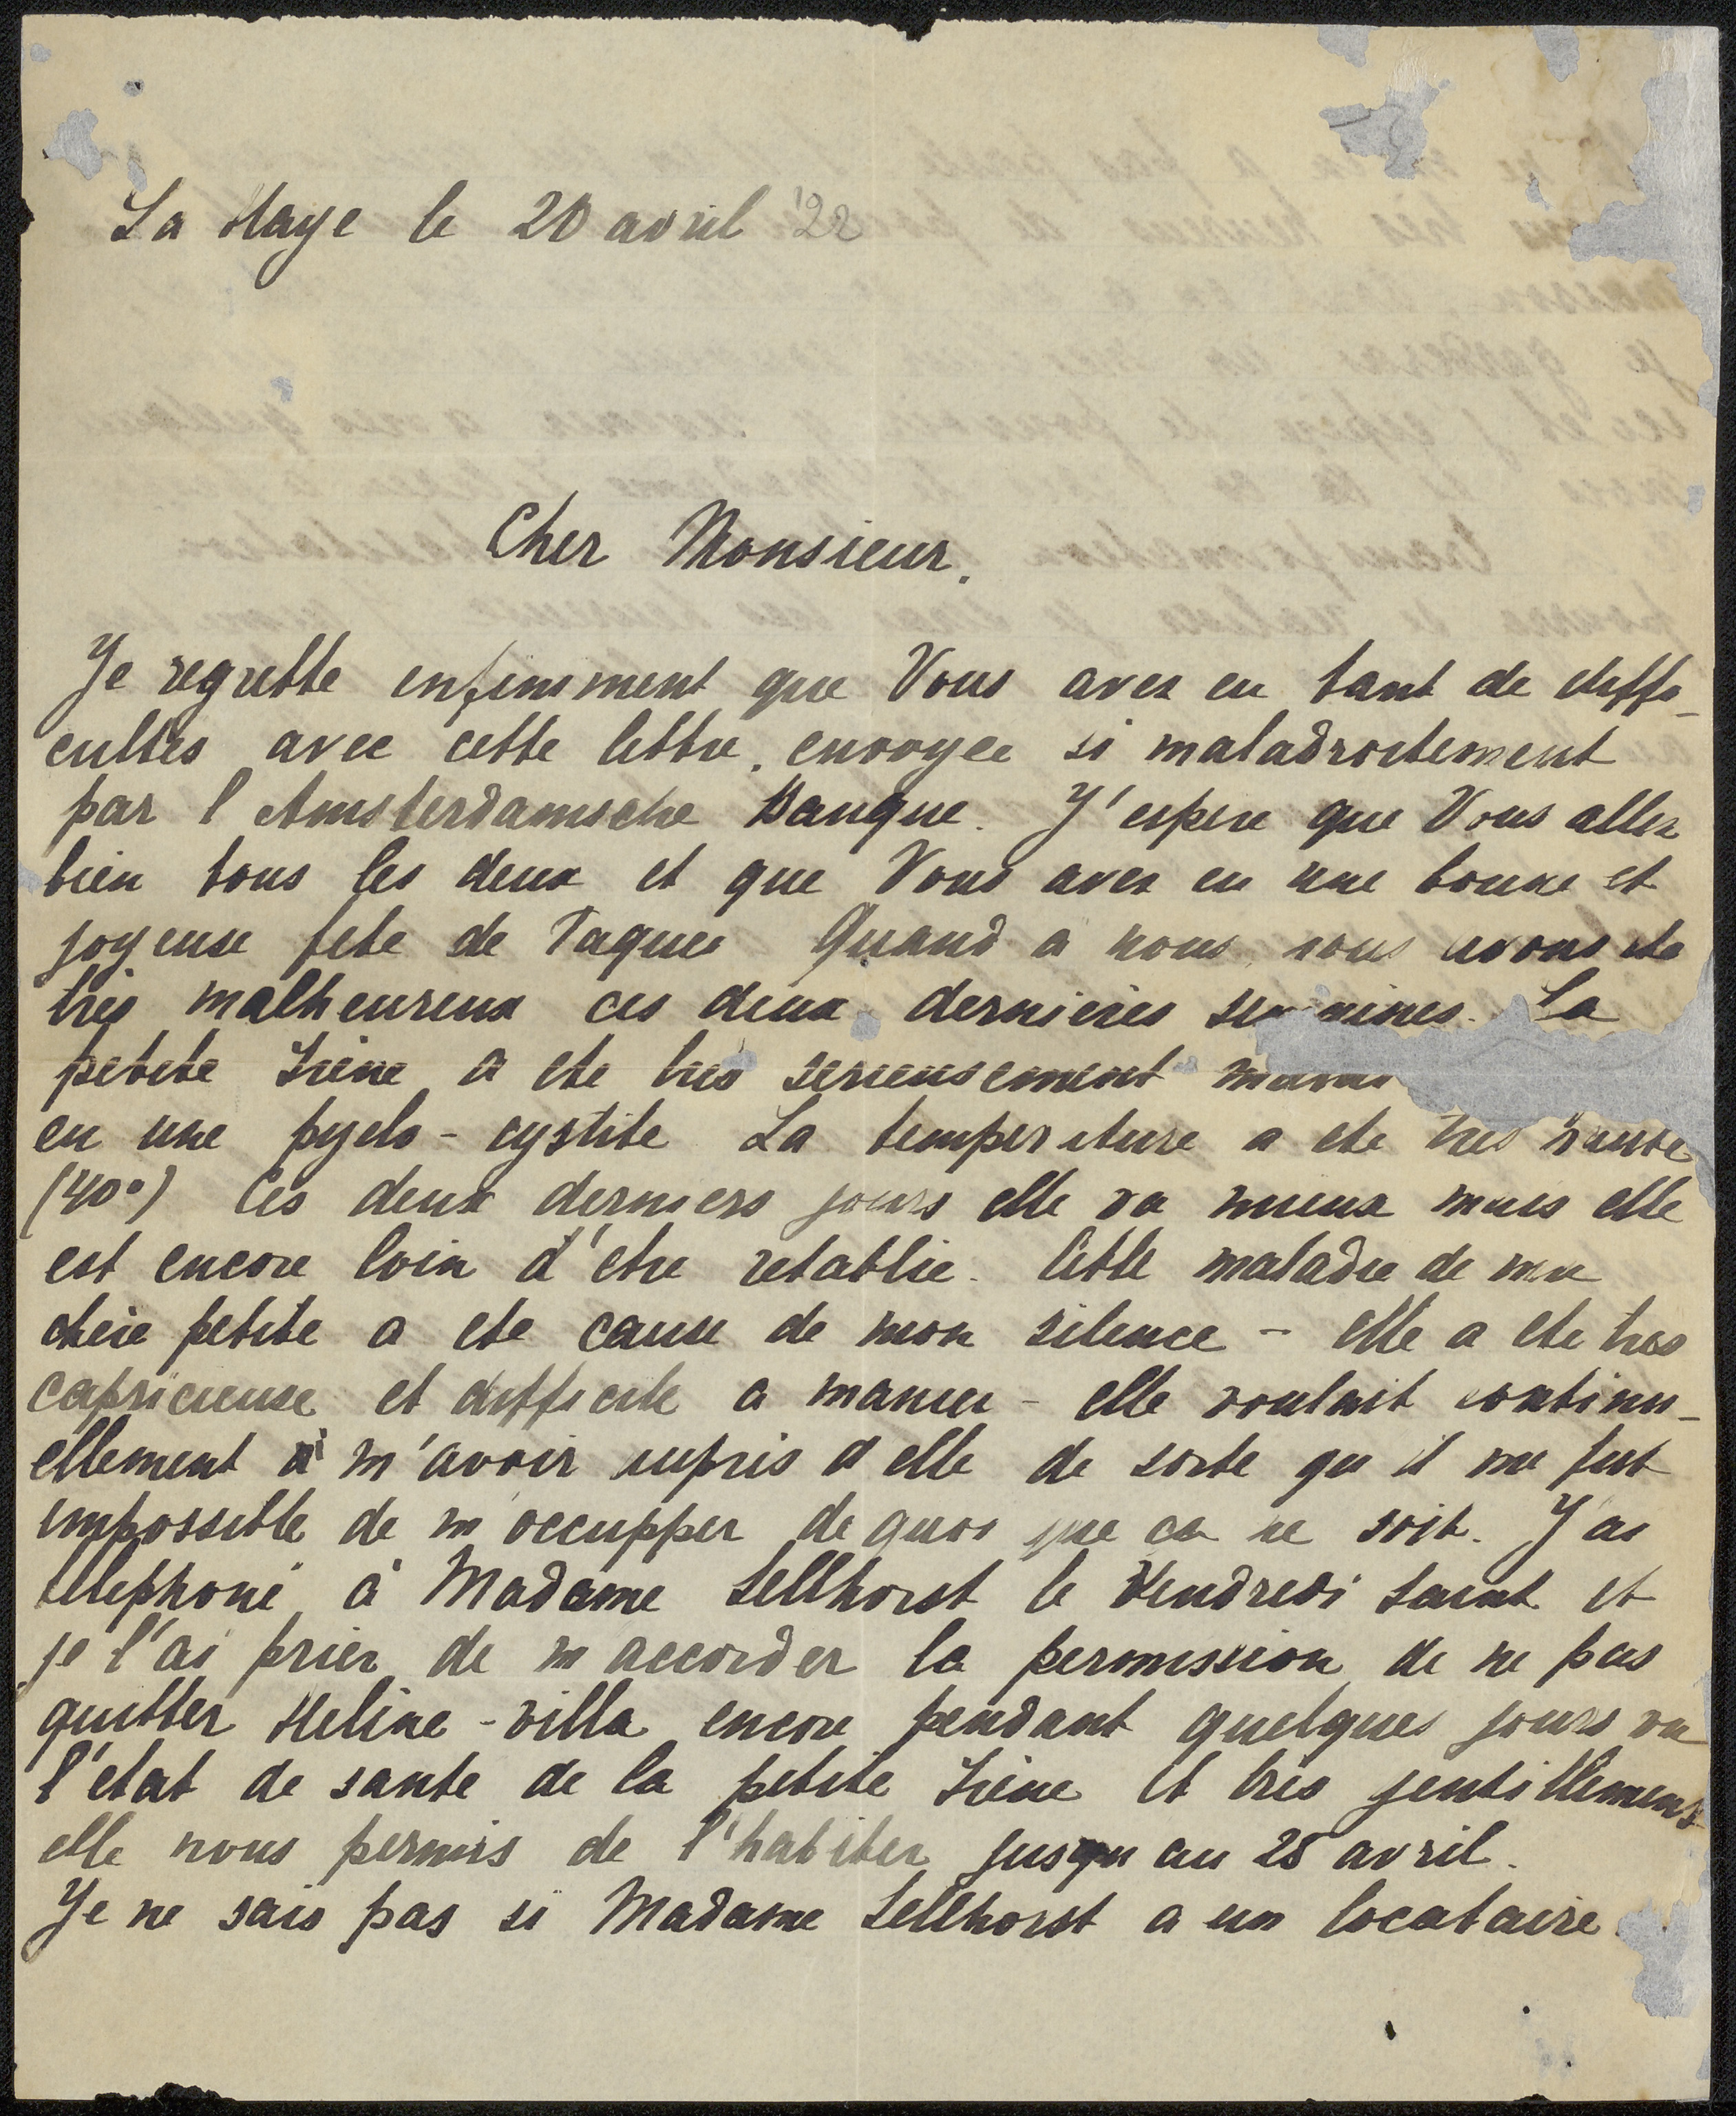 La Haye le 20 avril '22
Cher Monsieur.
Je regrette enfiniment que Vous avez eu tant de diffi-
cultes avec cette lettre, envoyee si maladroitement
par l'Amsterdamsche Banque. J'espere que Vous allez
bien tous les deux et que Vous avez eu une bonne et
joyeuse fete de Paques Quand a nous, nous avons ete
très malheureux ces deux dernieres semaines. La
petite Irène a ete tres serieusement
eu une pyelo-cystite La temperature a ete tres haute
(40°) Ces deux derniers jours elle va mieux mais elle
est encore loin d'etre retablie. Cette maladie de ma
chère petite a ete cause de mon silence - elle a ete tres
capricieuse et difficile a manier - elle voulait continu-
ellement à m'avoir aupris d elle de sorte qu il me fut
impossible de m'occupper de quoi que ca ne soit. J'ai
telephoné à Madame Sellhorst le Vendredi Saint et
je l'ai prier de m accorder la permission de ne pas
quitter Heline-villa encore pendant quelques jours vu
l'etat de sante de la petite Irène et très gentillement
elle nous permis de l'habiter jusqu au 25 avril.
Je ne sais pas si Madame Sellhorst a un locataire